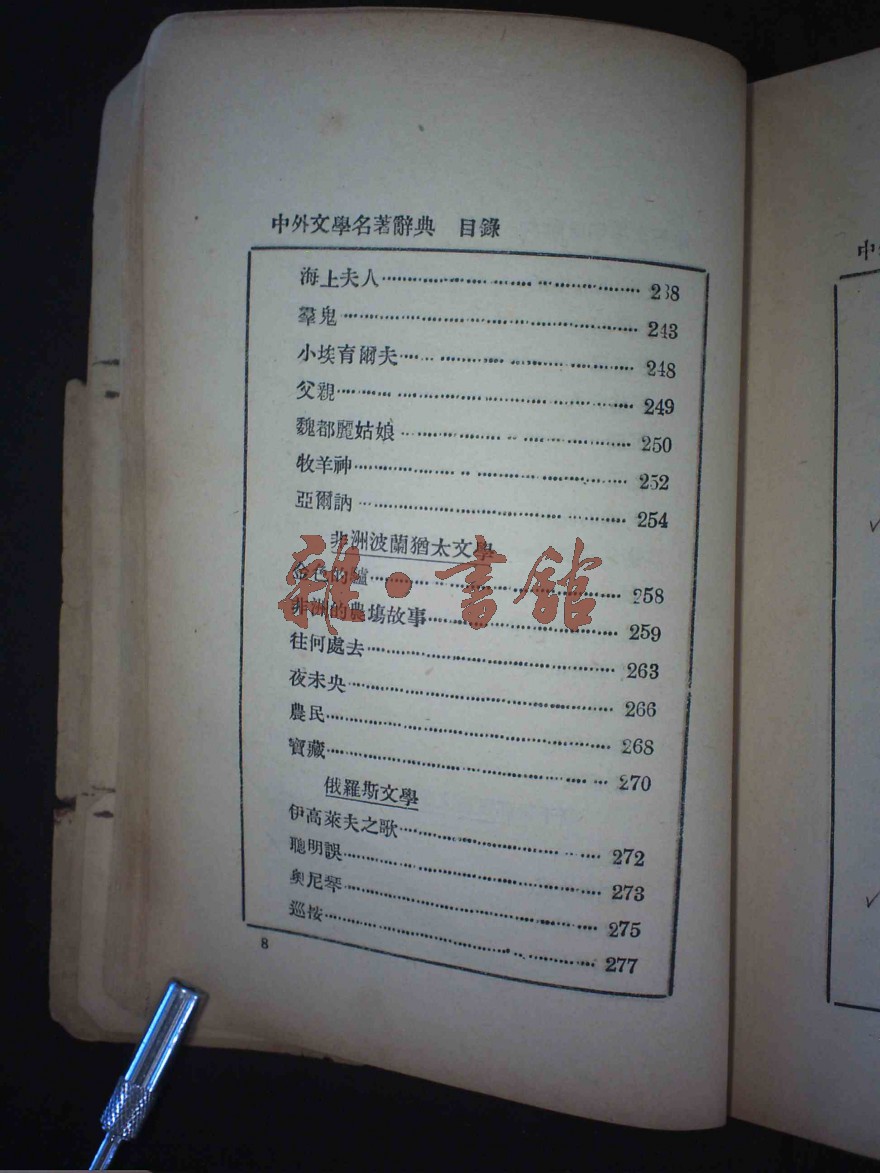 中外文學名著辭典 目錄
海上夫人 238
羣鬼 243
小埃育爾夫 248
父親 249
魏都麗姑娘 250
牧羊神 252
亞爾訥 254
非洲波蘭猶太文學
金色的驢 258
非洲的農場故事 259
往何處去 263
夜未央 266
農民 268
寶藏 270
俄羅斯文學
伊高萊夫之歌 272
聰明誤 273
奧尼琴 275
巡按 277
8
雜·書館
中